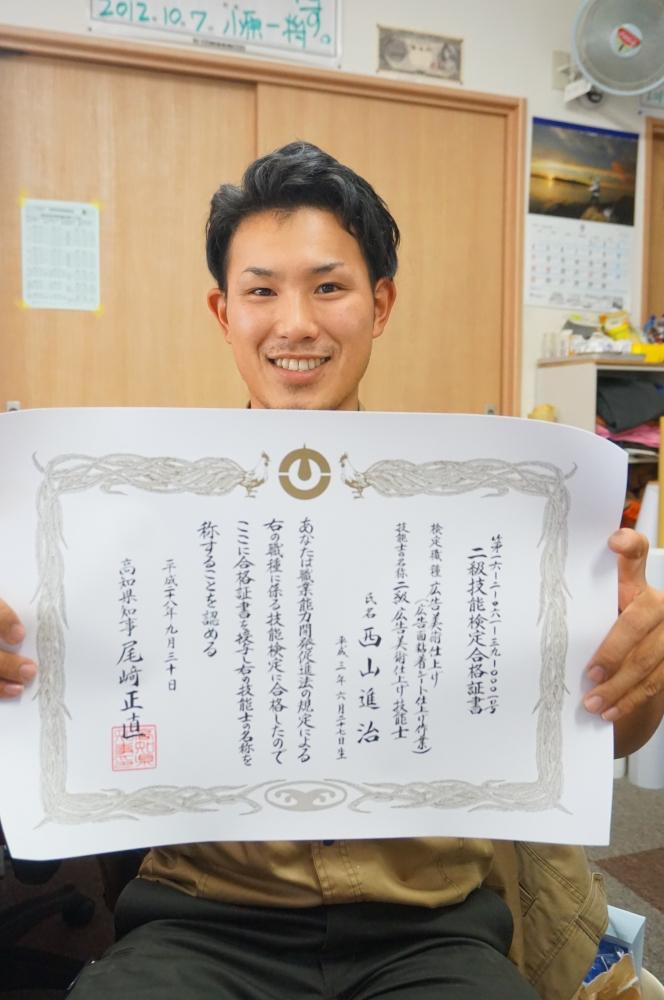 2012.10.7. 小原一梅す。
第一六-二-〇六一-三九-〇〇〇一号
二級技能検定合格証書
検定職種 広告美術仕上げ
（広告面粘着シート仕上げ作業）
技能士の名称 二級広告美術仕上げ技能士
氏名 西山進治
平成三年六月二十七日生
あなたは職業能力開発促進法の規定による
右の職種に係る技能検定に合格したので
ここに合格証書を授与し右の技能士の名称を
称することを認める
平成二十八年九月三十日
高知県知事 尾﨑正直